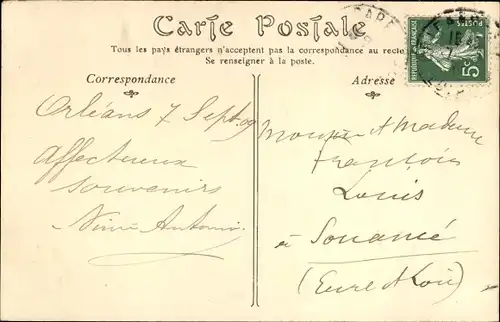 Carte Postale
Tous les pays étrangers n'acceptent pas la correspondance au recto
Se renseigner à la poste.
Correspondance
Adresse
REPUBLIQUE FRANÇAISE
POSTES
5c
Orléans 7 Sept 09
affectueux
souvenirs
Monsieur et Madame
François
Louis
à Souancé
(Eure et Loir)